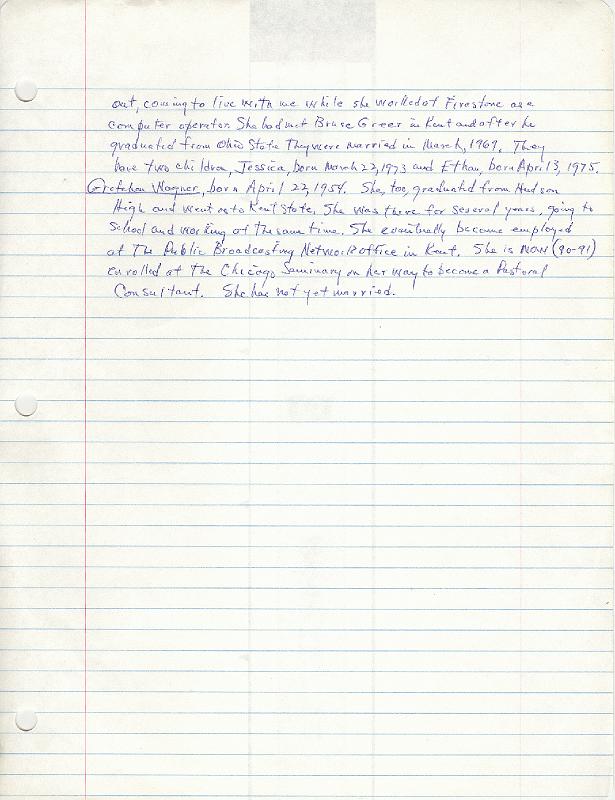 out, coming to live with me while she worked at Firestone as a
computer operator. She had met Bruce Greer in Kent and after he
graduated from Ohio State They were married in March, 1969. They
have two children, Jessica, born March 22, 1973 and Ethan, born April 3, 1975.
Gretchen Wagner, born April 22, 1954. She, too, graduated from Hudson
High and went onto Kent State. She was there for several years, going to
School and working at the same time. She eventually became employed
at The Public Broadcasting Network office in Kent. She is now (90-91)
enrolled at The Chicago Seminary on her way to become a Pastoral
Consultant. She has not yet married.